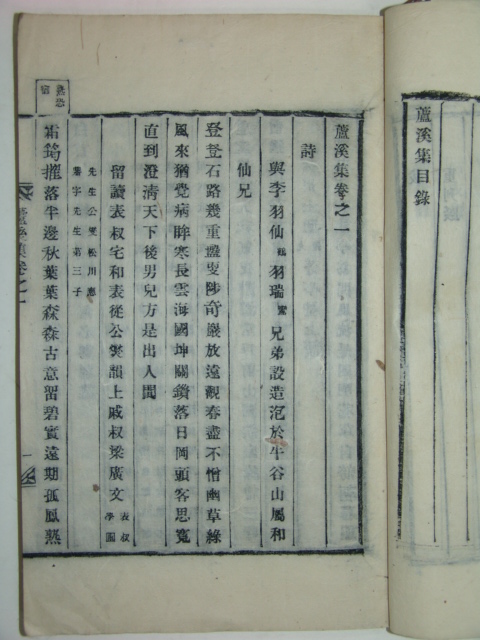 蘆溪集目錄
蘆溪集卷之一
詩
與李羽仙 羽瑞 兄弟設造泡於牛谷山屬和
仙兄
登登石路幾重盤更陟奇巖放遠觀春盡不憎幽草綠
風來猶覺病眸寒長雲海國坤關鎖落日岡頭客思寬
直到澄淸天下後男兒方是出人間
留讀表叔宅和表從公燮韻上戚叔梁廣文 表叔
先生公燮松川應
先生第三子
霜筠摧落半邊秋葉葉森森古意留碧實遠期孤鳳
蘆溪集卷之一